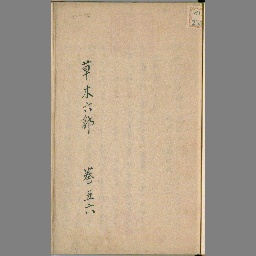 草木六部
卷五六